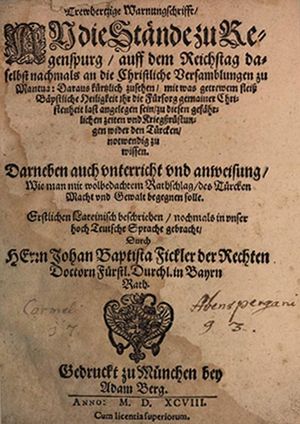 Trewhertzige Warnungschrifft/
AN die Stände zu Re-
genspurg / auff dem Reichstag da-
selbst nachmals an die Christliche Versamblungen zu
Mantua: Daraus kürtzlich zusehen / mit was getrewem fleiß
Bäpstliche Heiligkeit ihr die Fürsorg gemainer Chri-
stenheit last angelegen sein / zu diesen gefähr-
lichen zeiten vnd Kriegßrüstun-
gen wider den Türcken /
notwendig zu
wissen.
Darneben auch vnterricht vnd anweisung /
Wie man mit wolbedachtem Rathschlag / des Türcken
Macht vnd Gewalt begegnen solle.
Erstlichen Lateinisch beschrieben / nochmals in vnser
hoch Teutsche Sprache gebracht /
Durch
HErrn Johan Baptista Fickler der Rechten
Doctorn Fürstl. Durchl. in Bayrn
Rath.
Carmel.
57
93.
Gedruckt zu München bey
Adam Berg.
ANNO: M. D. XCVIII.
Cum licentia superiorum.